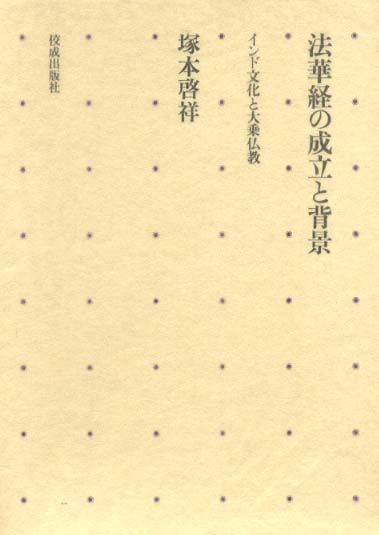 法華経の成立と背景
インド文化と大乗仏教
塚本啓祥
佼成出版社